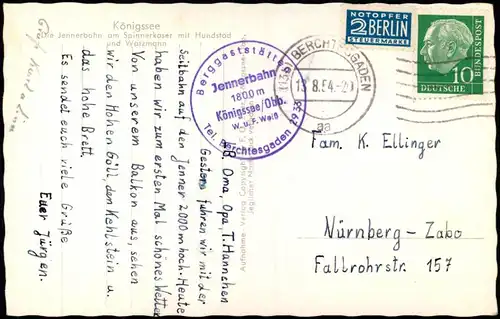 Königssee
Die Jennerbahn am Spinnerkaser mit Hundstod
und Watzmann
Berggaststätte
Jennerbahn
1800 m
Königssee/Obb.
W. u. F. Weiß
Tel. Berchtesgaden 2933
(13b) BERCHTESGADEN
13.8.54.-20
aa
NOTOPFER
2 BERLIN
STEUERMARKE
DEUTSCHE
BUNDESPOST
10
L.B. Oma, Opa, T. Hannchen
Gestern fuhren wir mit der
Seilbahn auf den Jenner 2000 m hoch. Heute
haben wir zum ersten Mal schönes Wetter
Von unserem Balkon aus, sehen
wir den Hohen Göll, den Kehlstein u.
das hohe Brett.
Es sendet euch viele Grüße
Euer Jürgen.
Fam. K. Ellinger
Nürnberg-Zabo
Fallrohrstr. 157